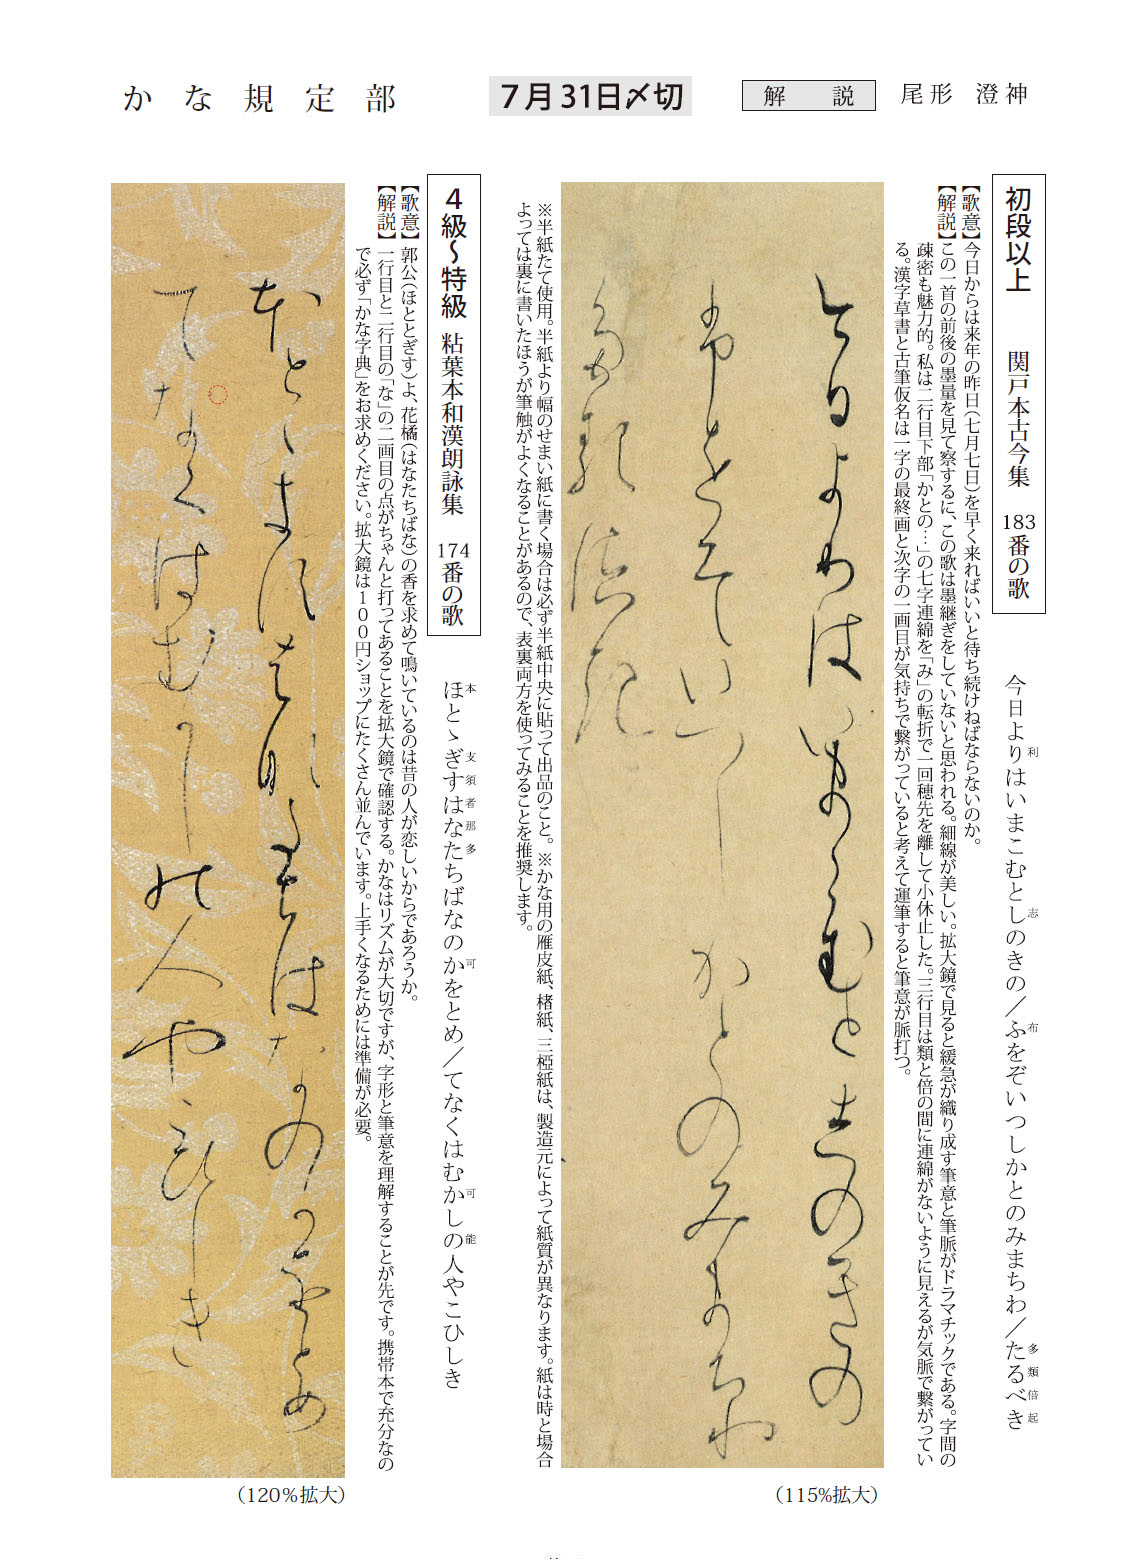 かな規定部
7月31日〆切
解説
尾形 澄神
初段以上 関戸本古今集 183番の歌
今日よりはいまこむとしのきの／ふをぞいつしかとのみまちわ／たるべき
利 志 布 多 類 倍 起
【歌意】今日からは来年の昨日（七月七日）を早く来ればいいと待ち続けねばならないのか。
【解説】この一首の前後の墨量を見て察するに、この歌は墨継ぎをしていないと思われる。細線が美しい。拡大鏡で見ると緩急が織り成す筆意と筆脈がドラマチックである。字間の
疎密も魅力的。私は二行目下部「かとの…」の七字連綿を「み」の転折で一回穂先を離して小休止した。三行目は類と倍の間に連綿がないように見えるが気脈で繋がってい
る。漢字草書と古筆仮名は一字の最終画と次字の一画目が気持ちで繋がっていると考えて運筆すると筆意が脈打つ。
今日よりはいまこむとしのきの
布をそていつしかとのみまちわ
多類倍起
（115%拡大）
※半紙たて使用。半紙より幅のせまい紙に書く場合は必ず半紙中央に貼って出品のこと。※かな用の雁皮紙、楮紙、三椏紙は、製造元によって紙質が異なります。紙は時と場合
よっては裏に書いたほうが筆触がよくなることがあるので、表裏両方を使ってみることを推奨します。
4級〜特級 粘葉本和漢朗詠集 174番の歌
ほとゝぎすはなたちばなのかをとめ／てなくはむかしの人やこひしき
本 支 須 者 那 多 可 可 能
【歌意】郭公（ほととぎす）よ、花橘（はなたちばな）の香を求めて鳴いているのは昔の人が恋しいからであろうか。
【解説】一行目と二行目の「な」の二画目の点がちゃんと打ってあることを拡大鏡で確認する。かなはリズムが大切ですが、字形と筆意を理解することが先です。携帯本で充分なの
で必ず「かな字典」をお求めください。拡大鏡は１００円ショップにたくさん並んでいます。上手くなるためには準備が必要。
本とゝ支須者那多ちはなのかをとめ
てなくはむ可し能人やこひしき
（120%拡大）